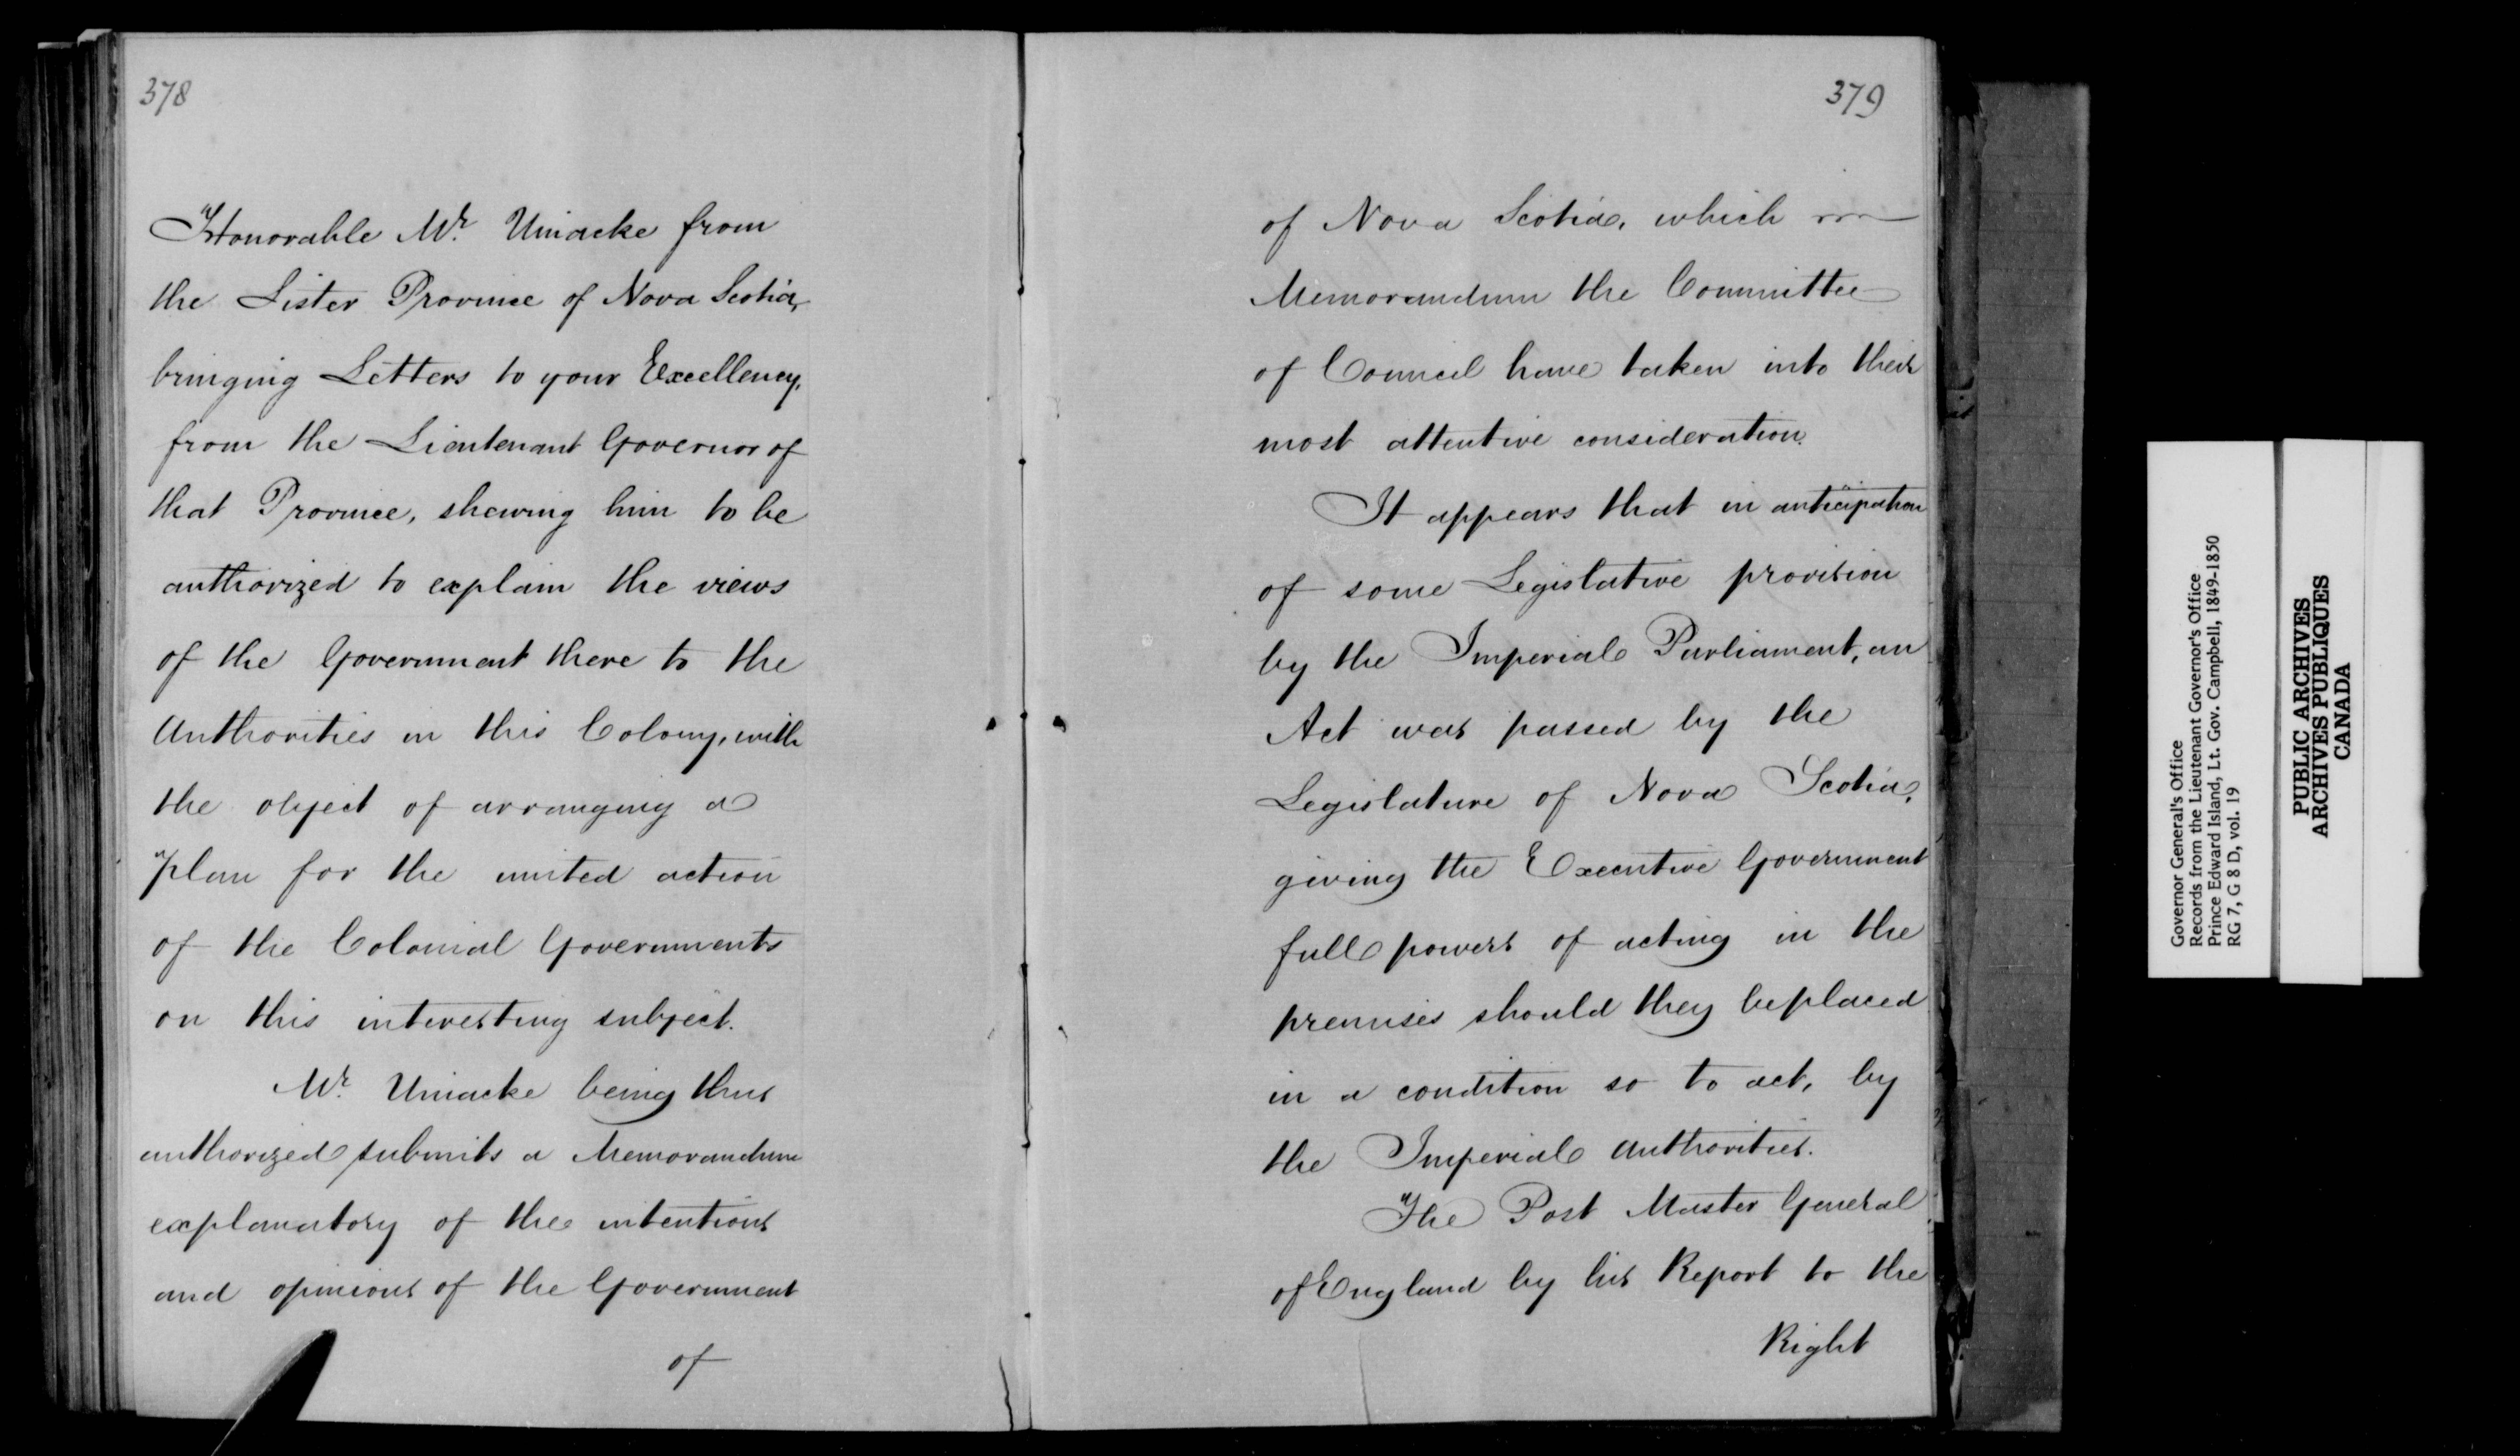 378
Honorable Mr. Uniacke from
the Sister Province of Nova Scotia,
bringing Letters to your Excellency,
from the Lieutenant Governor of
that Province, shewing him to be
authorized to explain the views
of the Government there to the
Authorities in this Colony, with
the object of arranging a
plan for the united action
of the Colonial Governments
on this interesting subject.
Mr. Uniacke being thus
authorized submits a Memorandum
explanatory of the intentions
and opinions of the Government
of
379
of Nova Scotia, which
Memorandum the Committee
of Council have taken into their
most attentive consideration.
It appears that in anticipation
of some Legislative provision
by the Imperial Parliament, an
Act was passed by the
Legislature of Nova Scotia,
giving the Executive Government
full powers of acting in the
premises should they be placed
in a condition so to act, by
the Imperial Authorities.
The Post Master General
of England by his Report to the
Right
Governor General's Office
Records from the Lieutenant Governor's Office
Prince Edward Island, Lt. Gov. Campbell, 1849-1850
RG 7, G 8 D, vol. 19
PUBLIC ARCHIVES
ARCHIVES PUBLIQUES
CANADA